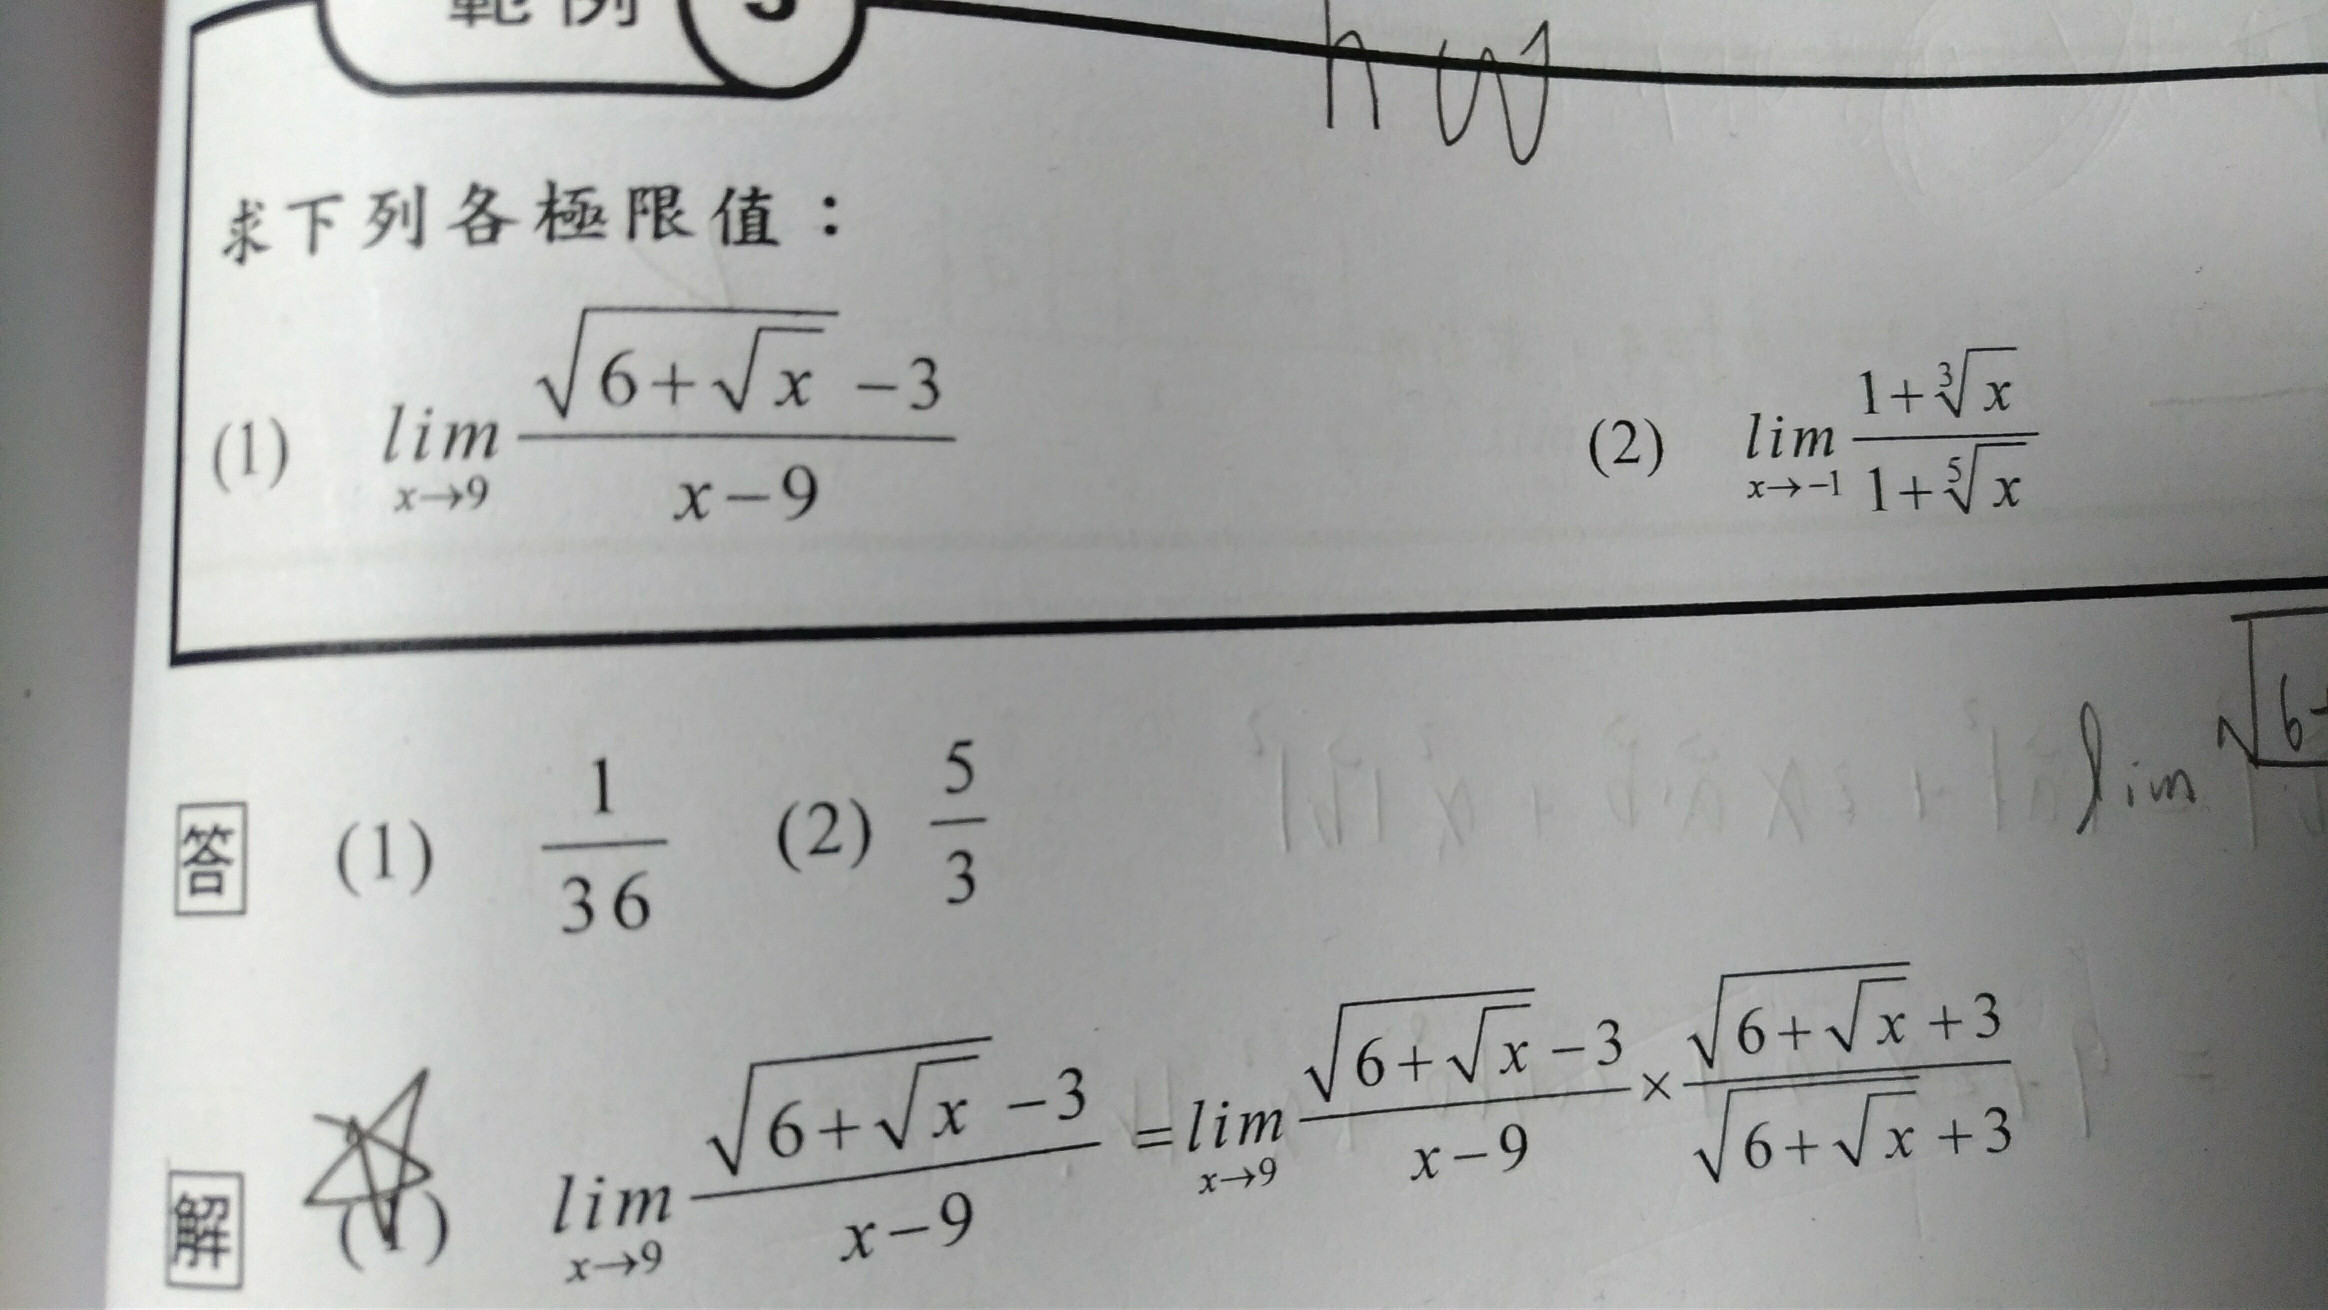 範例
hw
求下列各極限值：
(1) lim_{x→9} \frac{\sqrt{6+\sqrt{x}}-3}{x-9} (2) lim_{x→-1} \frac{1+\sqrt[3]{x}}{1+\sqrt[5]{x}}
lim √6
答 (1) \frac{1}{36} (2) \frac{5}{3}
解 (1) lim_{x→9} \frac{\sqrt{6+\sqrt{x}}-3}{x-9} = lim_{x→9} \frac{\sqrt{6+\sqrt{x}}-3}{x-9} × \frac{\sqrt{6+\sqrt{x}}+3}{\sqrt{6+\sqrt{x}}+3}